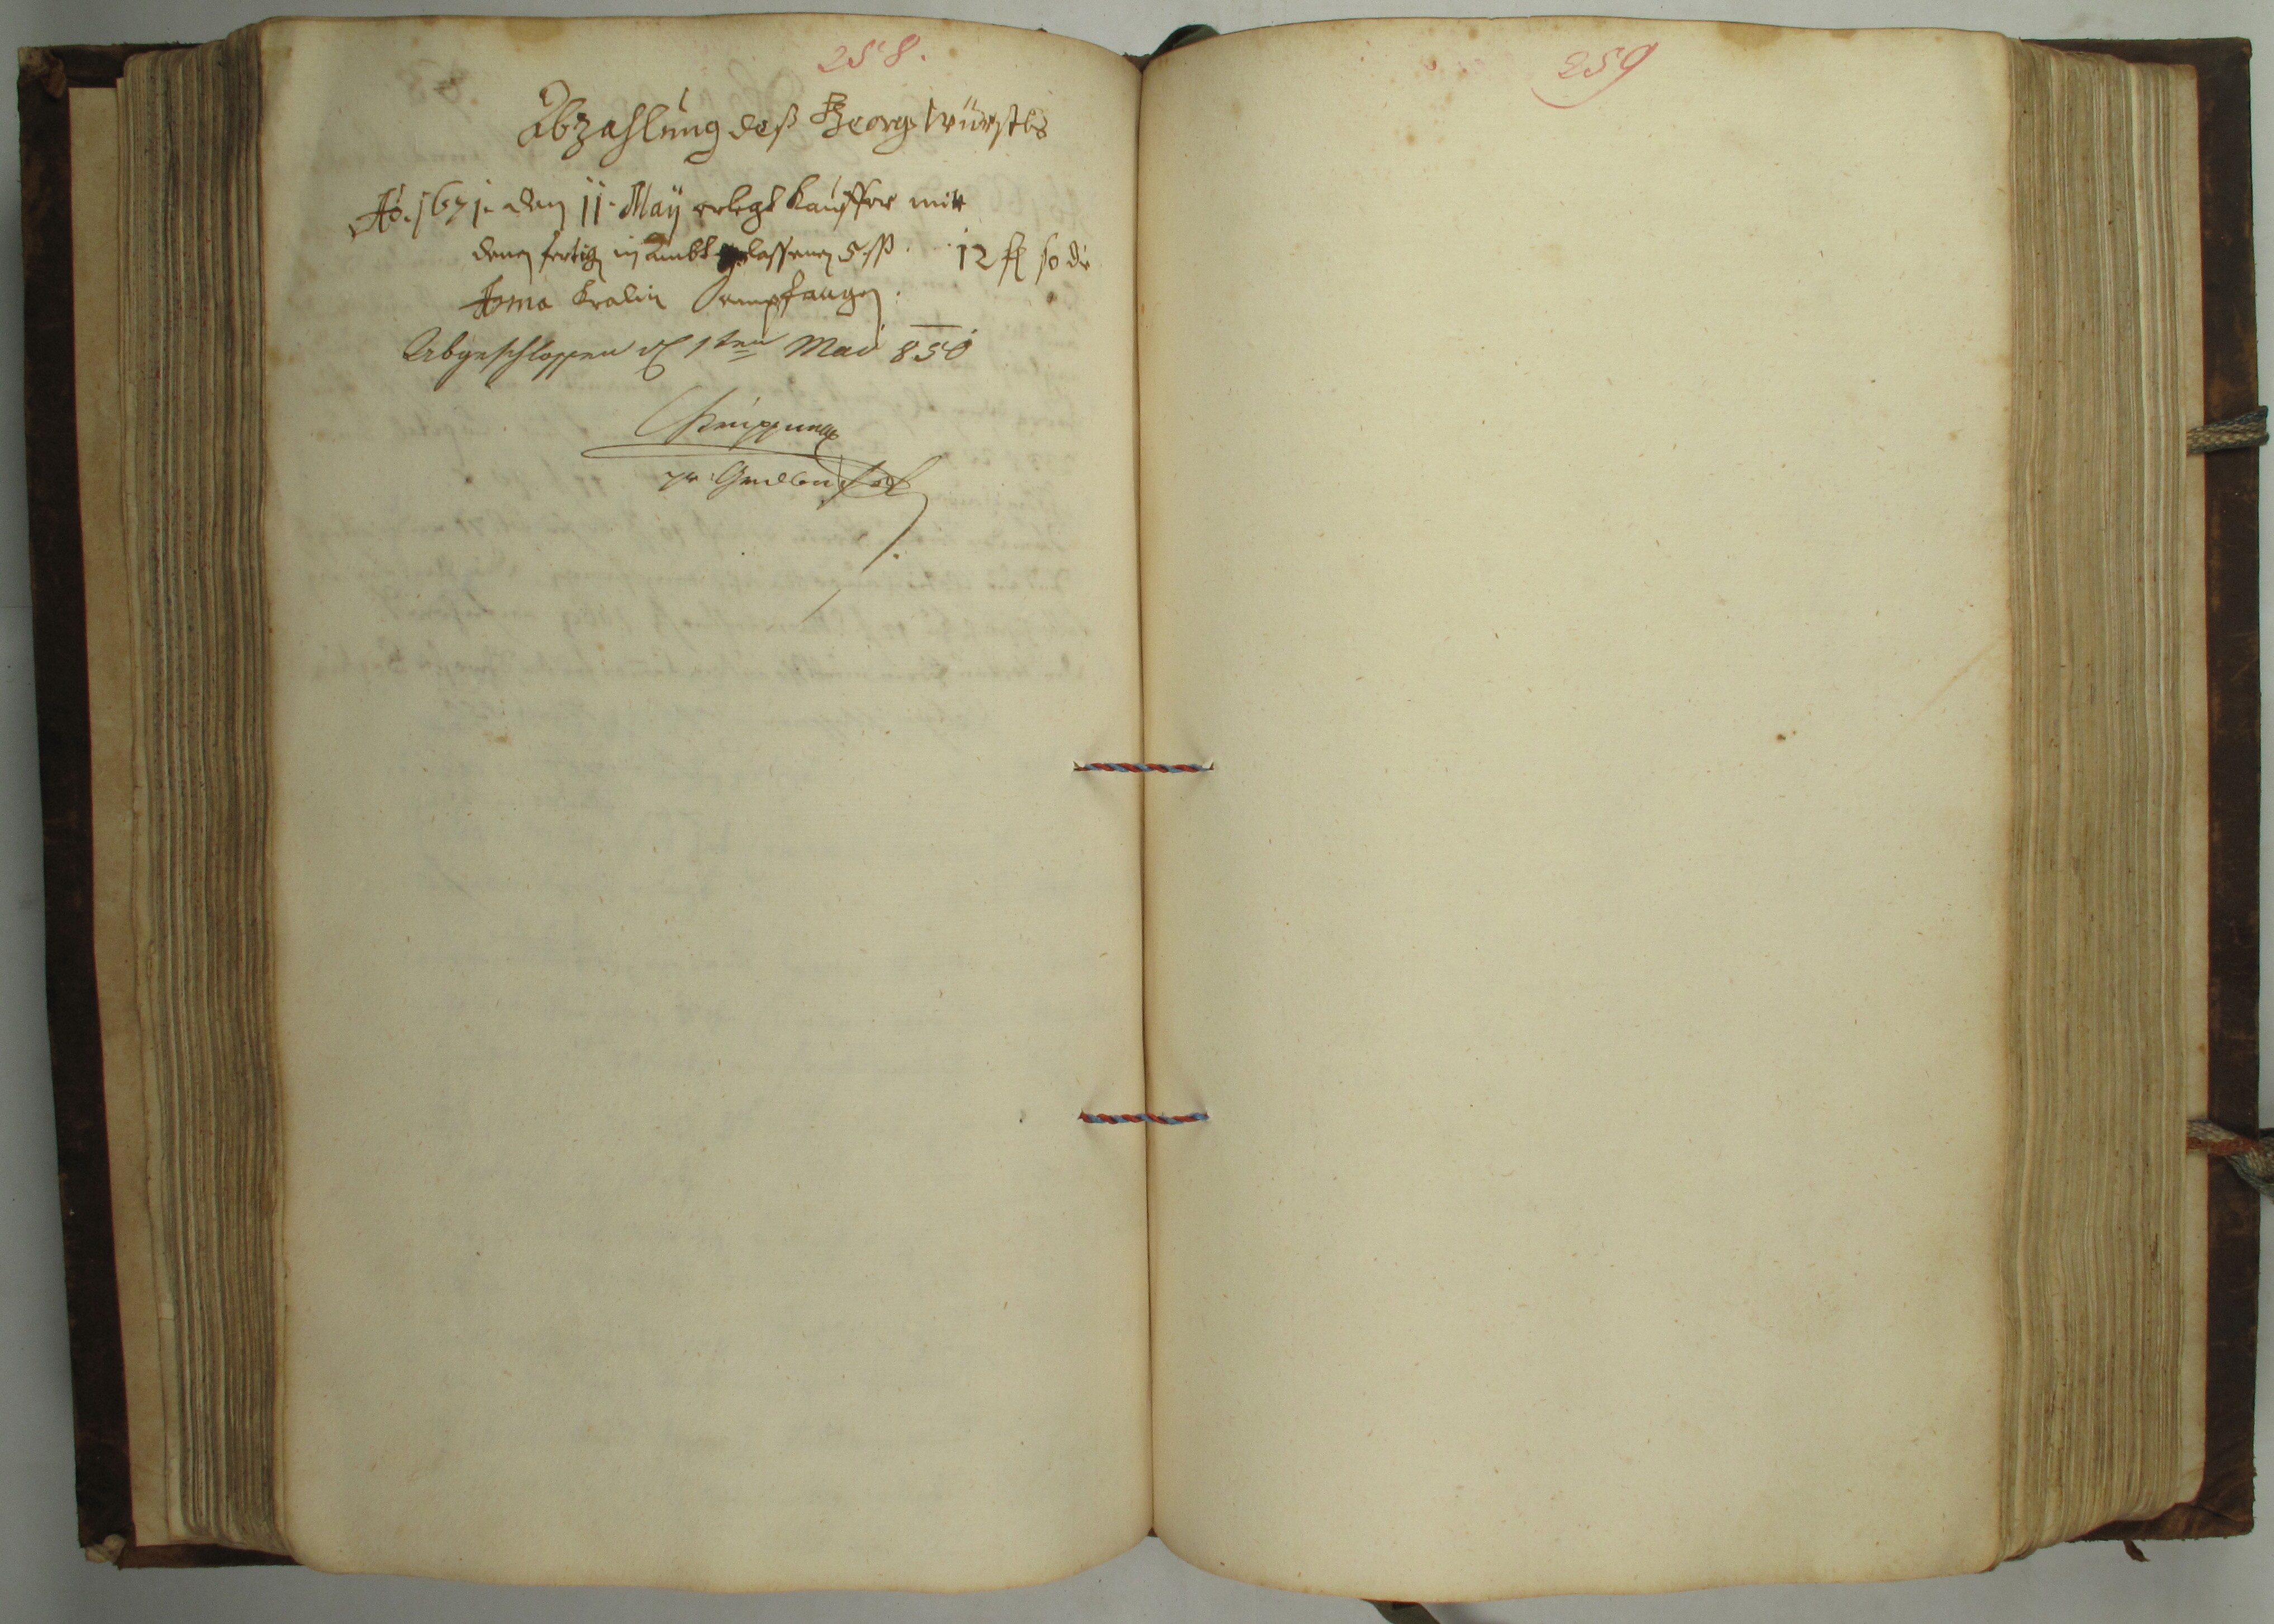 258.
Abzahlung deß Georg Würstls
Aō. 1671. den 11. May erlegt Kauffer mit
denen fertig in Ambt gelassenen 5 ß. 12 fl so die
Anna Kralin Empfangen.
Abgeschlossen d 1ten Mai 850
259